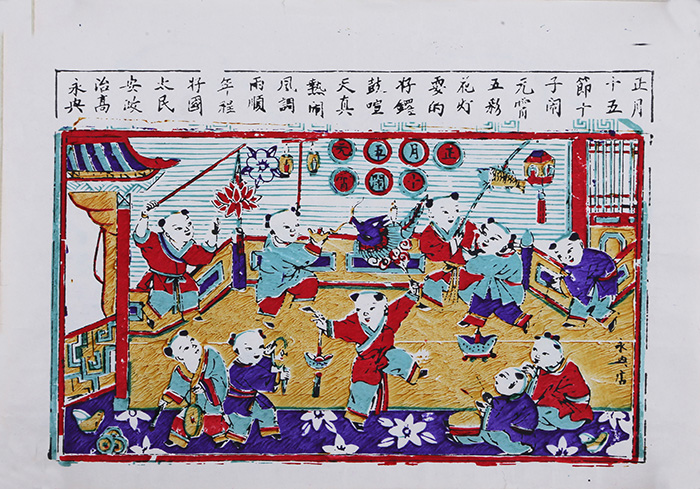 正月
十五
節十
子闹
元宵
五彩
花灯
耍的
好鑼
鼓喧
天真
熱闹
風調
雨順
年程
好國
太民
安政
治高
永興
正月十五閙元宵
永興店